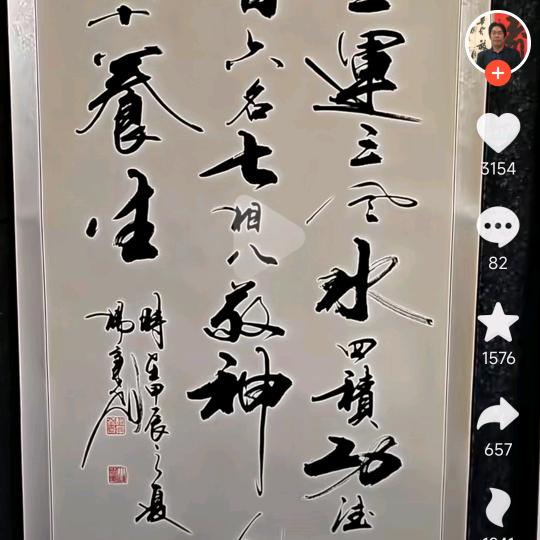 二運三風水四積功德
六名七相八敬神
十養生
時在甲辰之夏
3154
82
1576
657